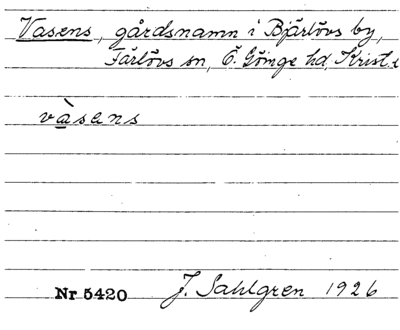 Vasens, gårdsnamn i Bjärlövs by,
Färlövs sn, Ö. Göinge hd, Krist. l.
vàsens
Nr 5420 J. Sahlgren 1926